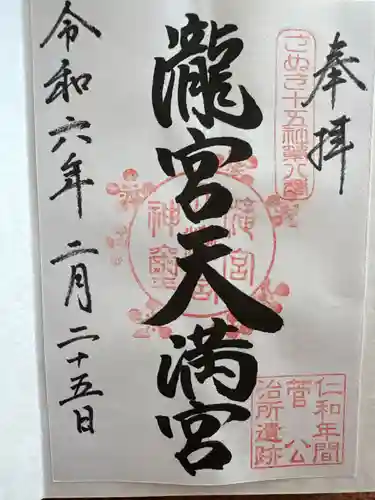 奉拝
さぬき十五社第八番
仁和年間
菅公
治所遺跡
瀧宮天満宮
令和六年 二月二十五日